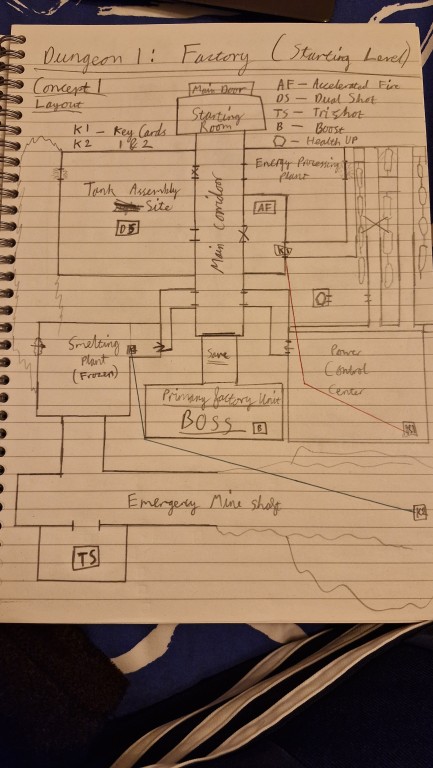 Dungeon 1: Factory (Starting Level)
Concept 1
Layout
K1 - Key Cards
K2 1 & 2
AF - Accelerated Fire
DS - Dual Shot
TS - Tri shot
B - Boost
- Health UP
Main Door
Starting
Room
Tank Assembly
Site
DS
Main Corridor
Energy Processing
Plant
AF
Smelting
Plant
(Frozen)
Save
Power
Control
Center
Primary factory Unit
BOSS
B
Emergency Mine shaft
TS